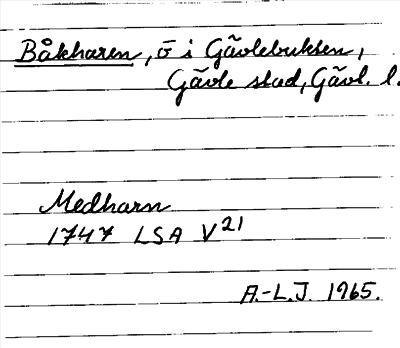 Båkharen, ö i Gävlebukten,
Gävle stad, Gävl. l.
Medharn
1747 LSA V21
A.-L.J. 1965.